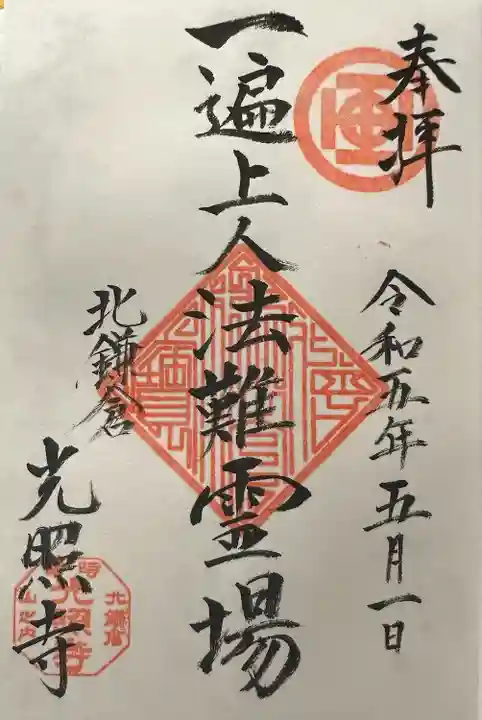 奉拝
令和五年五月一日
一遍上人法難霊場
北鎌倉
光照寺